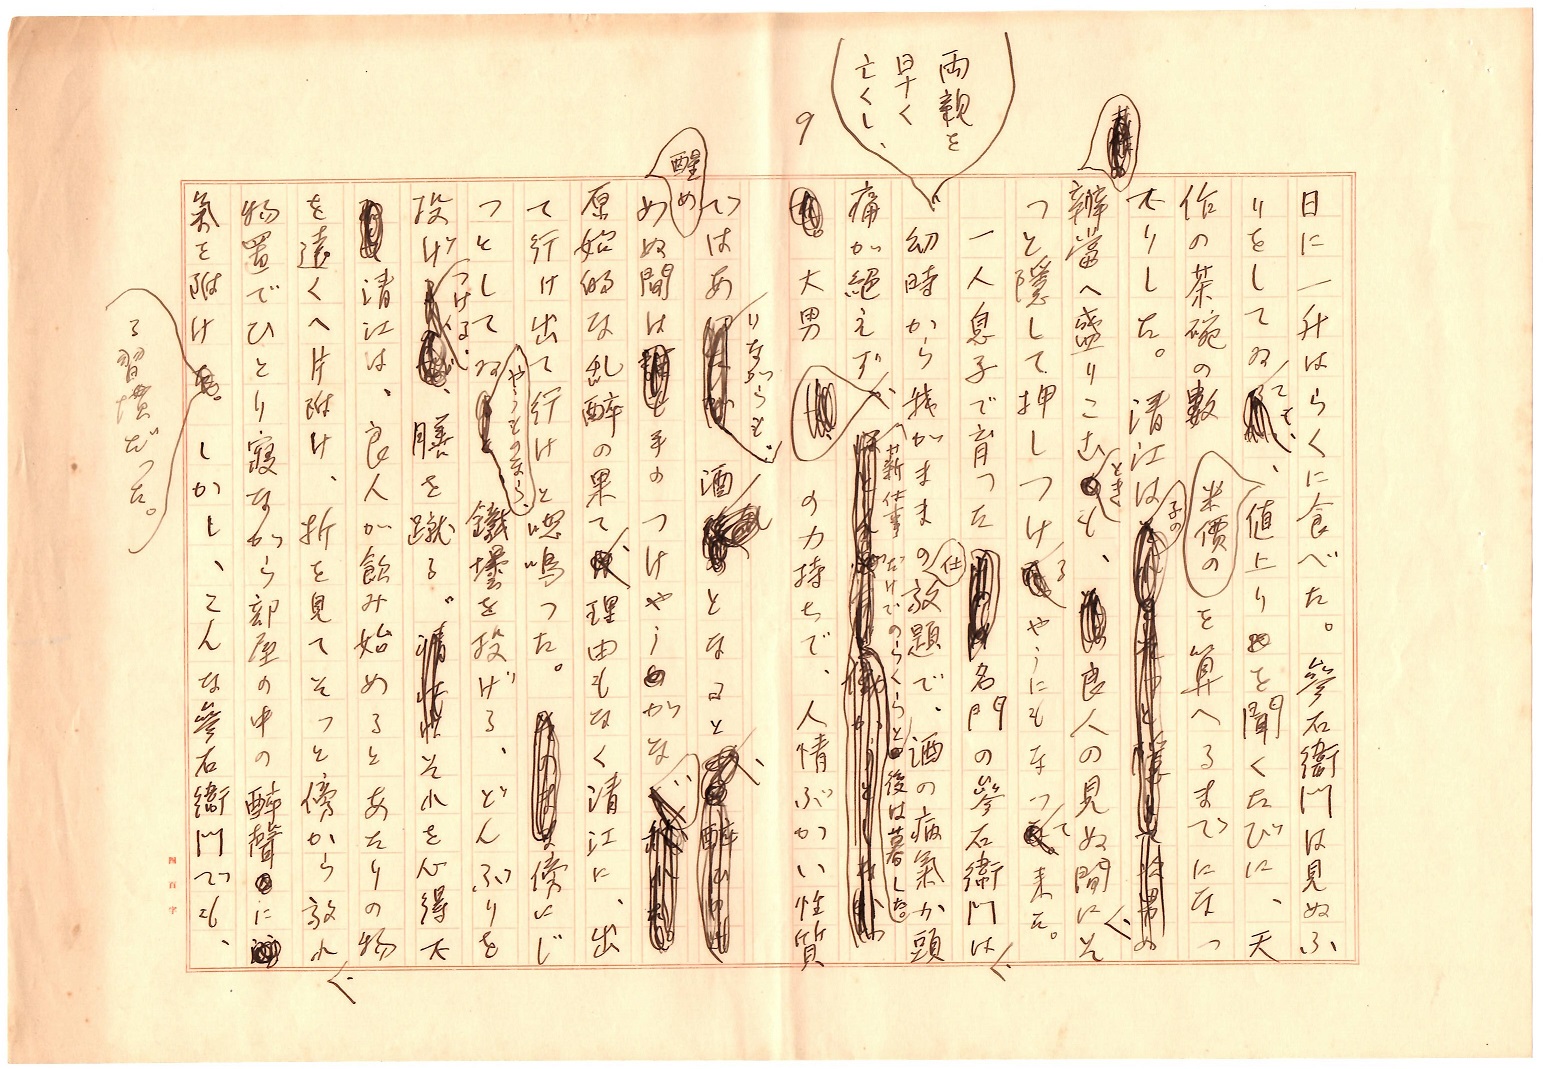 9
日に一升はらくに食べた。參右衛門は見ぬふ
りをしてゐても、値上りを聞くたびに、天
作の茶碗の數米價のを算へるまでになつ
たりした。清江は子の
辨當へ盛りこむときも、良人の見ぬ間にそ
つと隱して押しつけるやうにもなつて来た。
一人息子で育つた名門の參右衛門は
両親を
早く
亡くし、
幼時から我がままの仕放題で、酒の病氣か頭
痛が絶えず
薪仕事だけでのらくらと後は暮した。
大男の力持ちで、人情ぶかい性質
ではありながらも、酒となると、
醒めぬ間は手のつけやうがない
原始的な乱醉の果て、理由もなく清江に、出
て行け出て行けと呶鳴つた。傍にじ
つとしてゐやうものなら、鐵壜を投げる、どんぶりを
投げつける、膳を蹴る。それを心得た
清江は、良人が飲み始めるとあたりの物
を遠くへ片附け、折を見てそつと傍から放れ
物置でひとり寢ながら部屋の中の醉聲に
氣を附ける習慣だつた。しかし、こんな參右衛門でも、
四百字